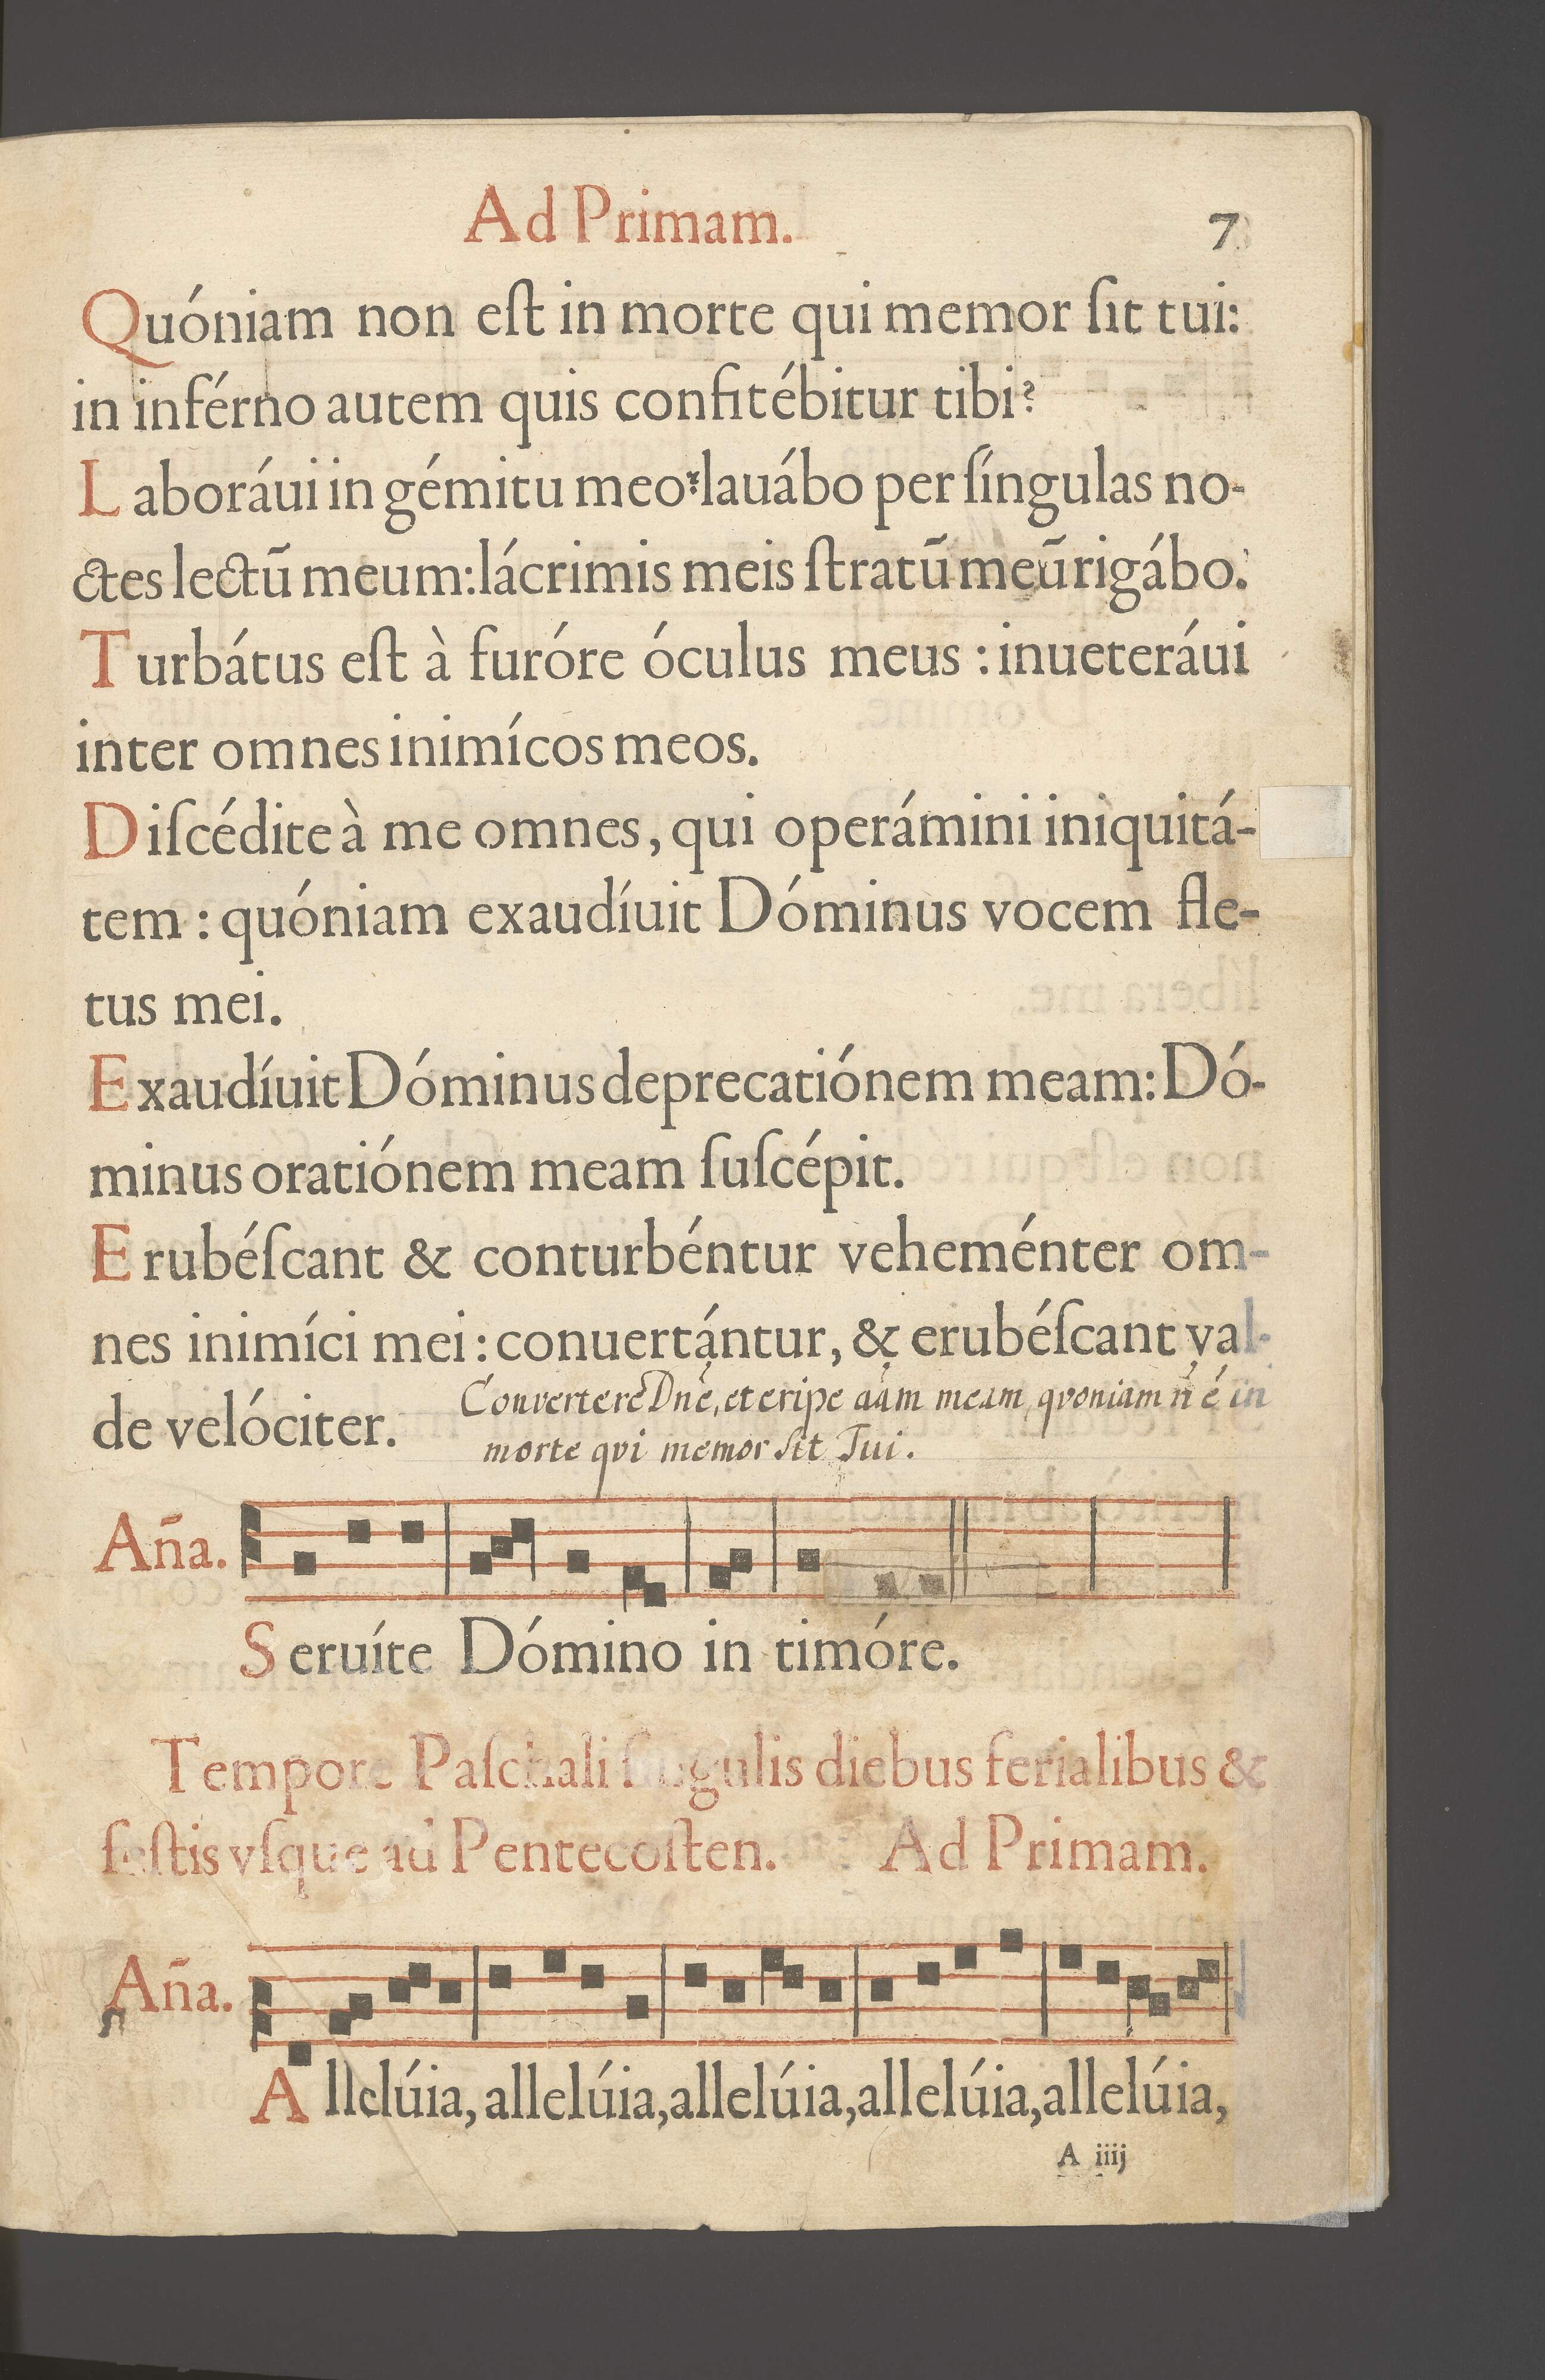 Ad Primam. 7
Quóniam non eſt in morte qui memor ſit tui:
in inférno autem quis confitébitur tibi?
Laboráui in gémitu meo: lauábo per ſíngulas no-
ctes lectū meum: lácrimis meis ſtratū meū rigábo.
Turbátus eſt à furóre óculus meus : inueteráui
inter omnes inimícos meos.
Diſcédite à me omnes, qui operámini iniquitá-
tem : quóniam exaudíuit Dóminus vocem fle-
tus mei.
Exaudíuit Dóminus deprecatiónem meam: Dó-
minus oratiónem meam ſuſcépit.
Erubéſcant & conturbéntur veheménter om-
nes inimíci mei : conuertántur, & erubéſcant val-
de velóciter.
Convertere Dnē, et eripe aām meam, qvoniam n̄ é in
morte qvi memor sit Tui.
Aña.
Seruíte Dómino in timóre.
Tempore Paſchali ſingulis diebus ferialibus &
feſtis vſque ad Pentecoſten. Ad Primam.
Aña.
Allelúia, allelúia, allelúia, allelúia, allelúia,
A iiij